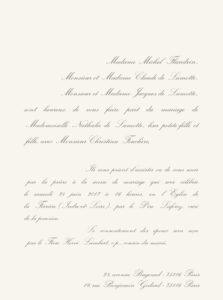 Madame Michel Flandrin,
Monsieur et Madame Claude de Lamotte,
Monsieur et Madame Jacques de Lamotte,
sont heureux de vous faire part du mariage de
Mademoiselle Nathalie de Lamotte, leur petite-fille et
fille, avec Monsieur Christian
Ils vous prient d'assister ou de vous unir
par la prière à la messe de mariage qui sera célébrée
le samedi 24 juin à 16 heures en l'Église de
la (Indre-et-Loire), par le Père
de la paroisse.
Le consentement des époux sera reçu
par le Père Henri cousin du marié.
75116 Paris
18 rue Benjamin Godard - 75116 Paris